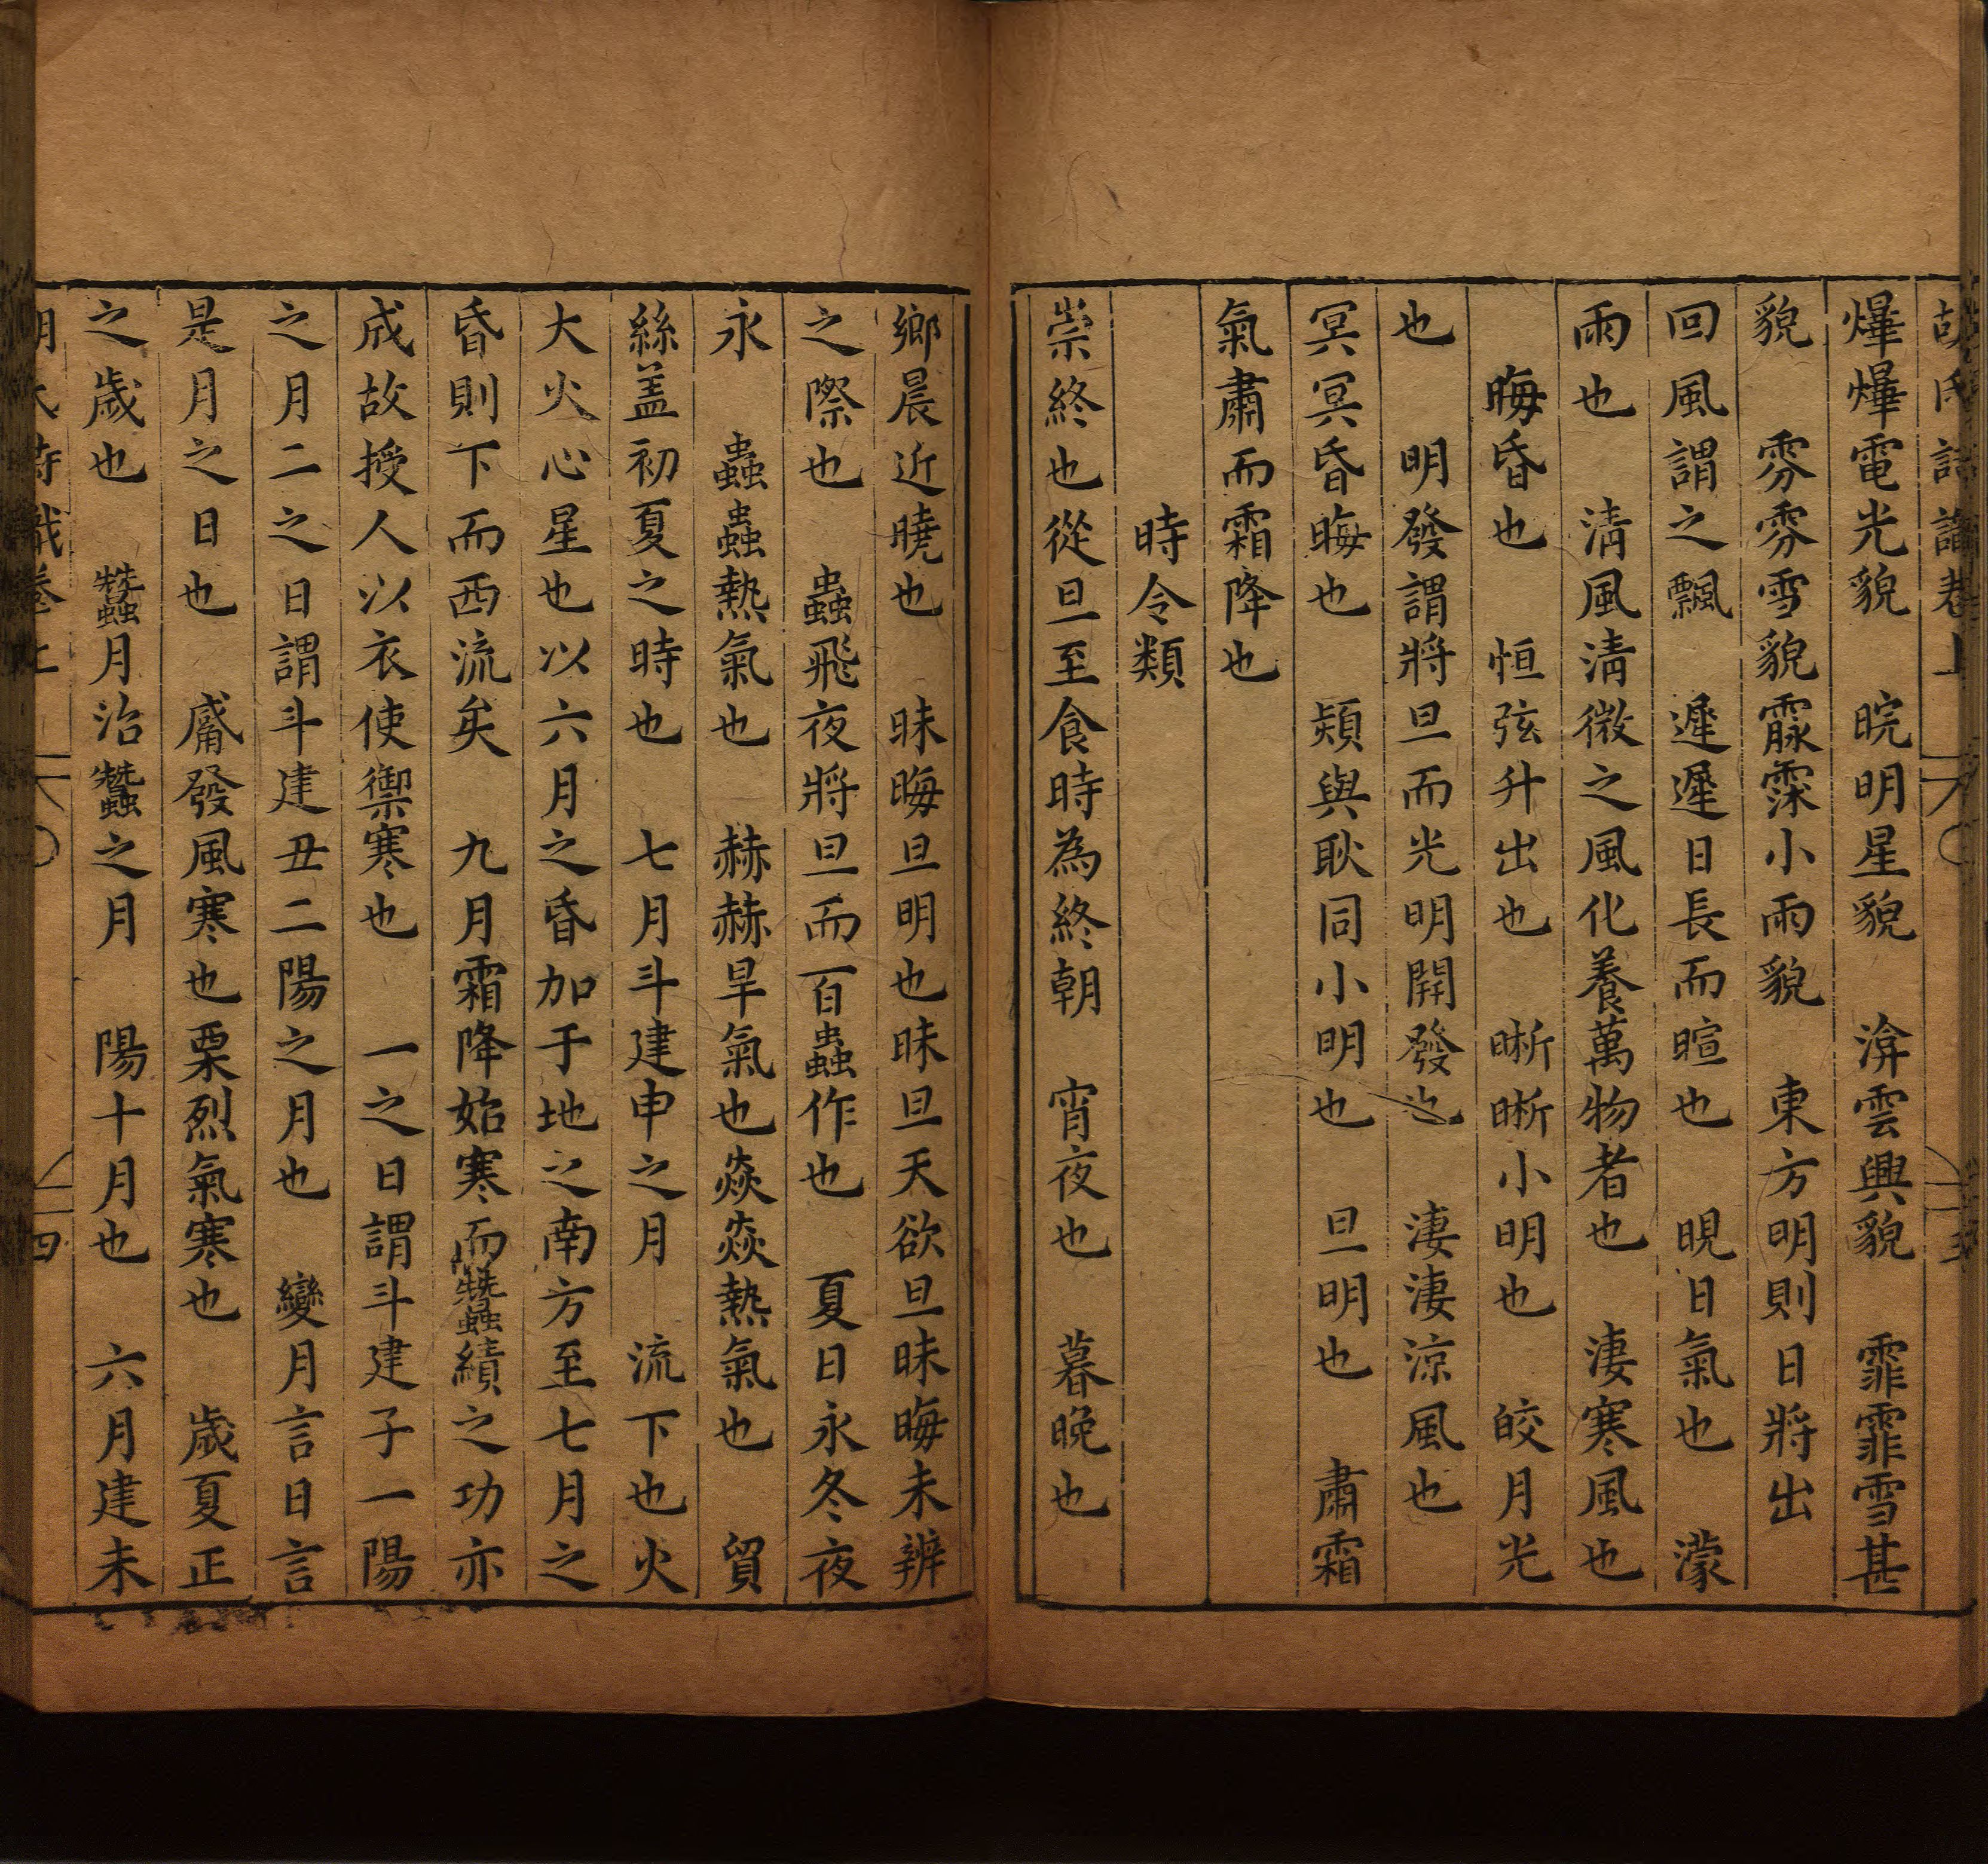 爗爗電光貌　睆明星貌　渰雲興貌　霏霏雪甚
貌　雰雰雪貌霢霂小雨貌　東方明則日將出
回風謂之飄　遲遲日長而暄也　晛日氣也　濛
雨也　清風清微之風化養萬物者也　淒寒風也
晦昏也　恒弦升出也　晣晣小明也　皎月光
也　明發謂將旦而光明開發也　淒淒涼風也
冥冥昏晦也　熲與耿同小明也　旦明也　肅霜
氣肅而霜降也
時令類
崇終也從旦至食時為終朝　宵夜也　暮晚也
鄉晨近曉也　昧晦旦明也昧旦天欲旦昧晦未辨
之際也　蟲飛夜將旦而百蟲作也　夏日永冬夜
永　蟲蟲熱氣也　赫赫旱氣也焱焱熱氣也　貿
絲盖初夏之時也　七月斗建申之月　流下也火
大火心星也以六月之昏加于地之南方至七月之
昏則下而西流矣　九月霜降始寒而蠶績之功亦
成故授人以衣使禦寒也　一之日謂斗建子一陽
之月二之日謂斗建丑二陽之月也　變月言日言
是月之日也　觱發風寒也栗烈氣寒也　歲夏正
之歲也　蠶月治蠶之月　陽十月也　六月建未